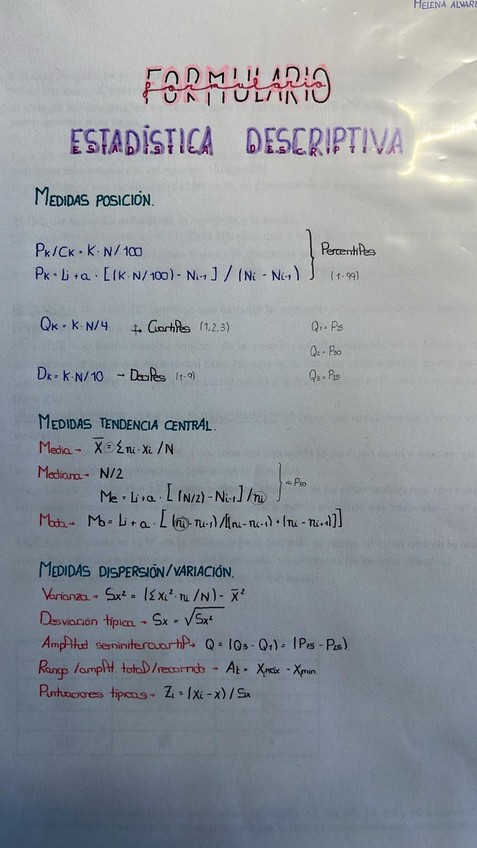 HELENA ALVARE
FORMULARIO
formulario
ESTADÍSTICA DESCRIPTIVA
ESTADÍSTICA DESCRIPTIVA
MEDIDAS POSICIÓN.
PK/CK = K·N/100
PK = Li + a · [(K·N/100) - Ni-1] / (Ni - Ni-1) } Percentiles (1-99)
QK = K·N/4 ↳ Cuartiles (1,2,3) Q1 = P25
Q2 = P50
DK = K·N/10 → Deciles (1-9) Q3 = P25
MEDIDAS TENDENCIA CENTRAL.
Media → X̄ = Σni·xi/N
Mediana → N/2
Me = Li + a · [(N/2) - Ni-1]/ni } = P50
Moda → Mo = Li + a · [(ni - ni-1)/[(ni - ni-1) + (ni - ni+1)]]
MEDIDAS DISPERSIÓN/VARIACIÓN.
Varianza → Sx² = (Σxi²·ni/N) - X̄²
Desviación típica → Sx = √Sx²
Amplitud semiintercuartil → Q = (Q3 - Q1) = (P75 - P25)
Rango/amplit. total/recorrido → At = Xmáx - Xmin
Puntuaciones típicas → Zi = (Xi - x) / Sx